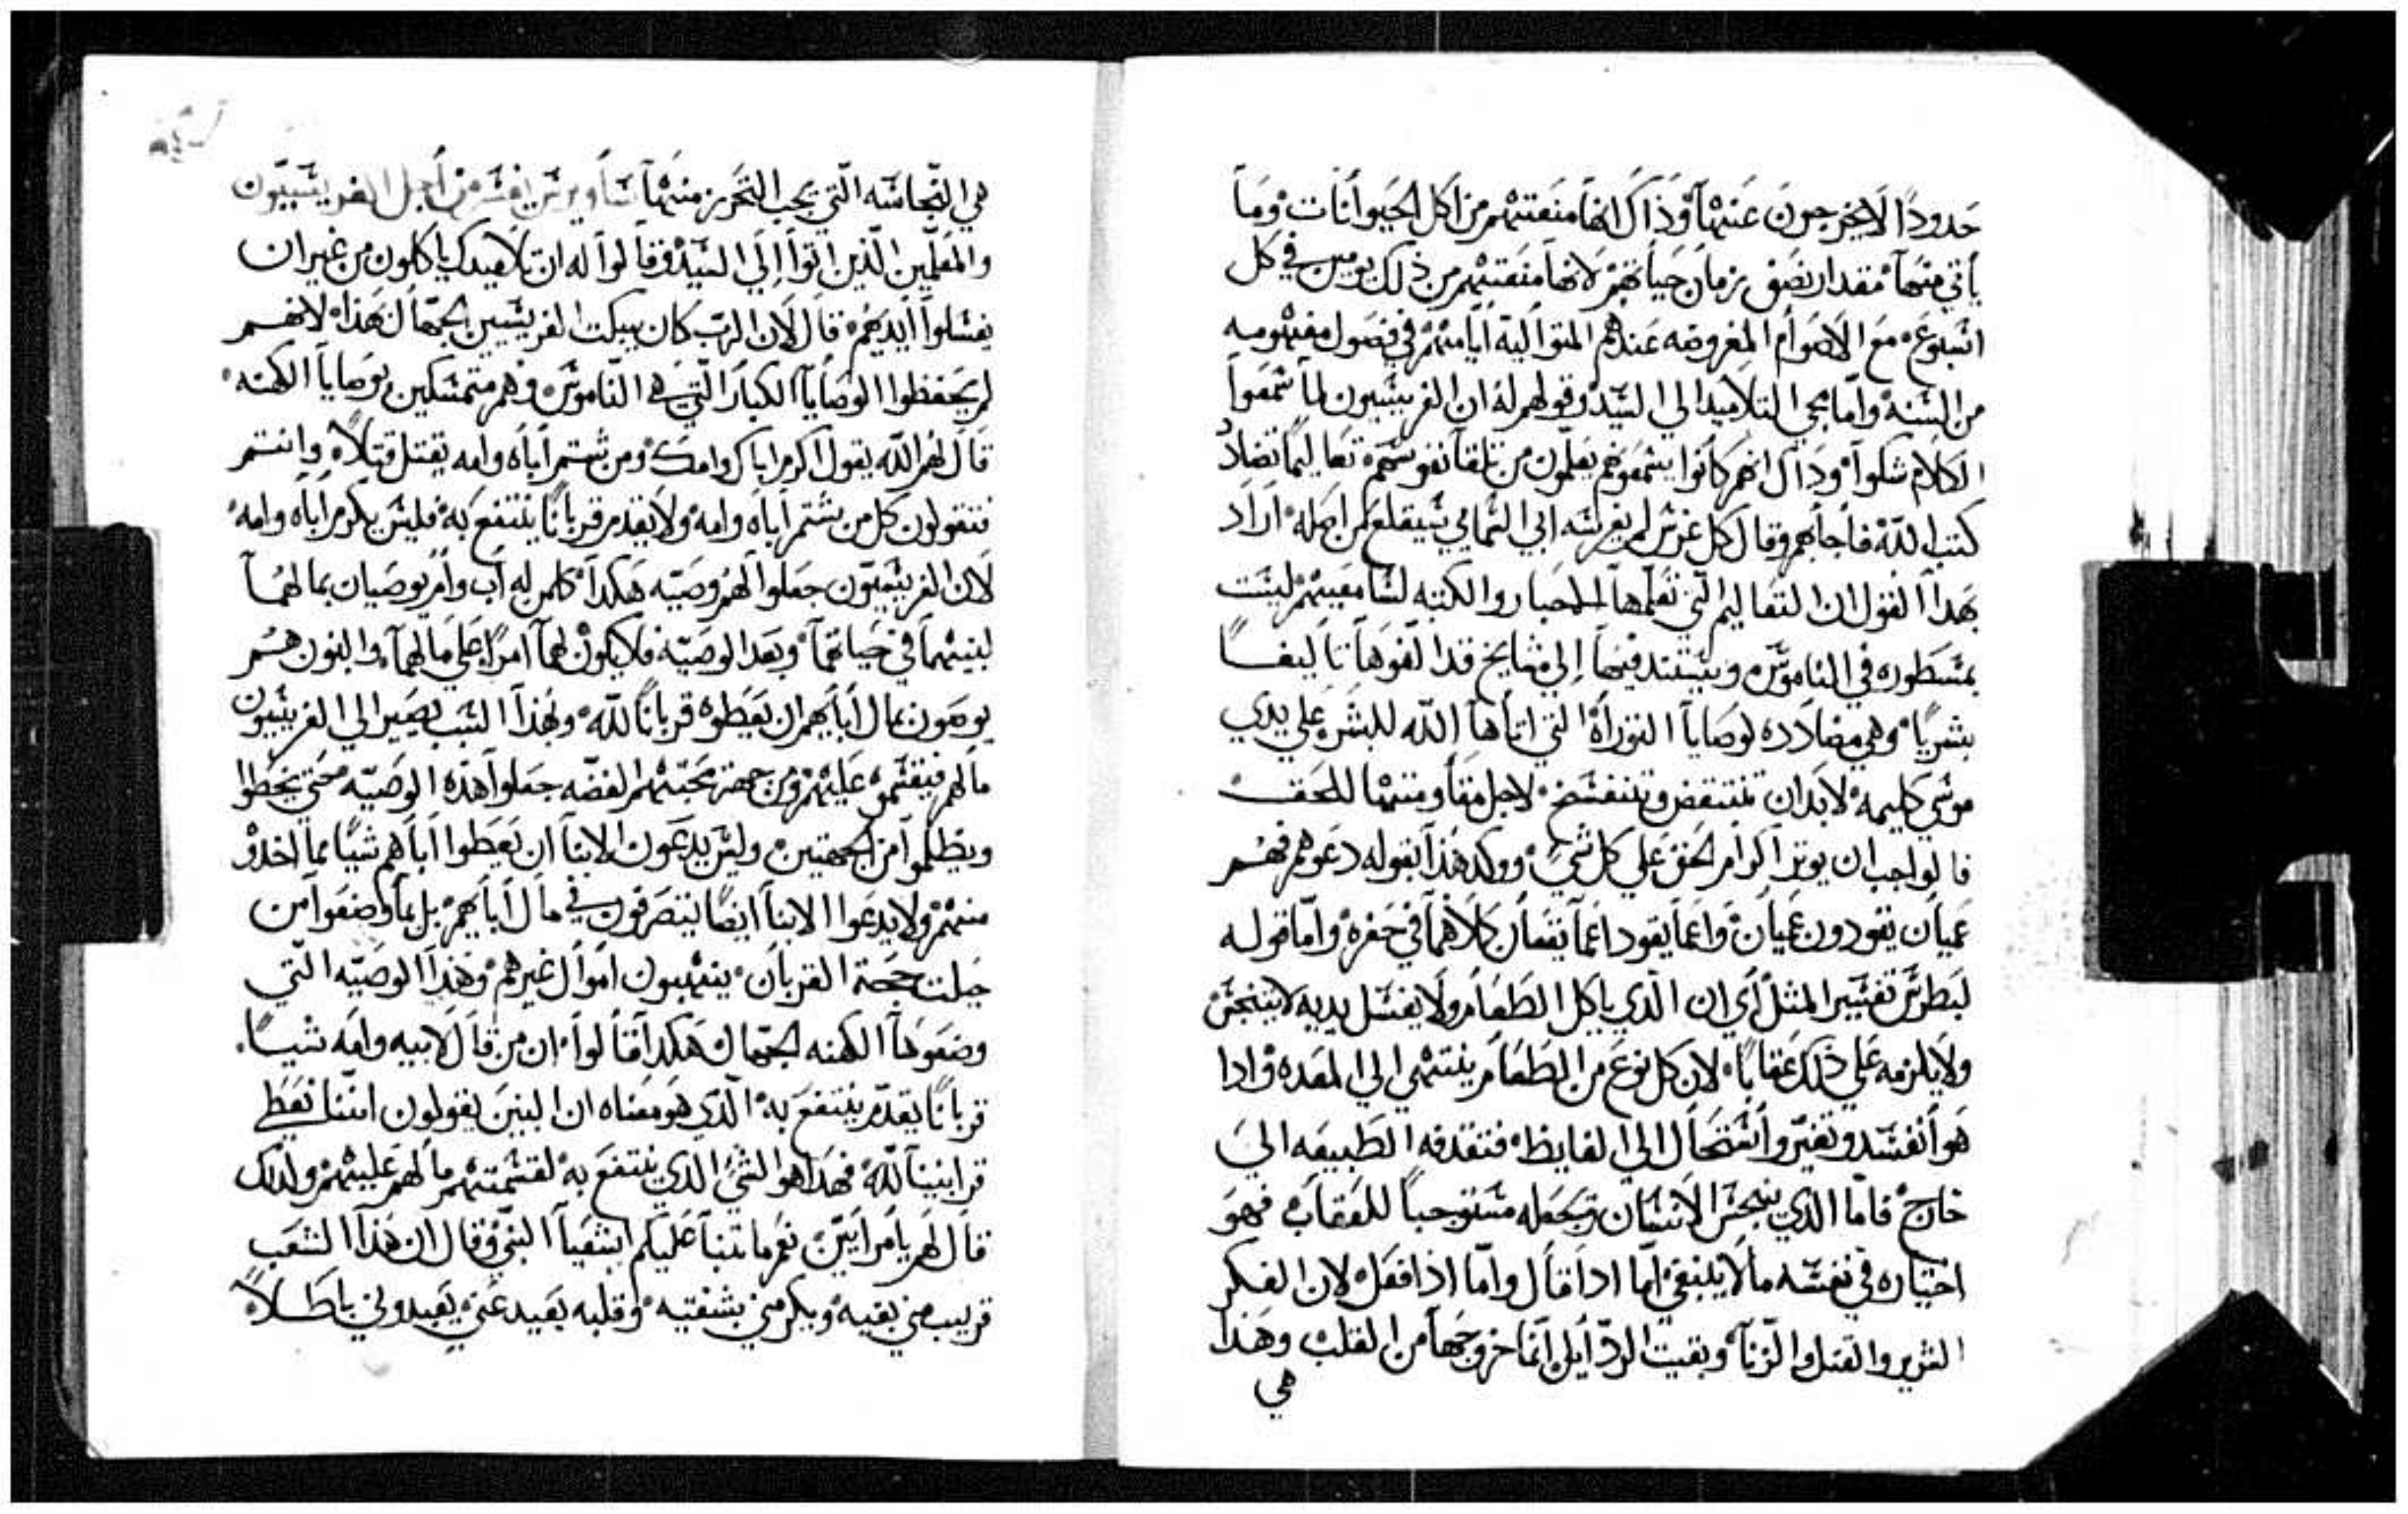 حدودًا لا يخرجون عنها وذاك انها منعتهم من اكل الحيوانات وما
ياتي منها مقدار نصف زمان حياتهم لانها منعتهم من ذلك يومين في كل
اسبوع مع الاصوام المفروضه عندهم المتواليه ايامهم في فصول مفسومه
من السنة واما مجي التلاميد الي السيد وقولهم له ان الفريسيون لما سمعوا
الكلام شكوا وداك انهم كانوا يسمعونهم يعلمون من تلقا نفوسهم تعاليمًا تضاد
كتب الله فاجابهم وقال كل غرس لم يغرسه ابي السمايي سيقلع من اصله اراد
بهدا القول ان التعاليم التي تعلمها الاحبار والكتبه لسامعيهم ليست
بمسطوره في الناموس ويستند فيها إلي مشايخ قد الفوها تاليفًا
بشريًا وهي مضادده لوصايا التوراة التي اتاها الله للبشر علي يدي
موسي كليمه لابد ان تنتقض وتنفسخ لاجل مقاومتها للحق
فالواجب ان يوتر اكرام الحق علي كل شي ووكد هذا بقوله دعوهم فهم
عميان يقودون عميان واعما يقود اعما يقعان كلاهما في حفره واما قوله
لبطرس تفسير المثل أي ان الذي ياكل الطعام ولا يغسل يديه لا يتنجس
ولا يلزمه علي ذلك عقابًا لان كل نوع من الطعام ينتهي الي المعده وادا
هو انفسد وتغير واستحال الي الغايظ فتقدفه الطبيعه الي
خارج فاما الذي ينجس الانسان ويجعله مستوجبا للعقاب فهو
اختياره في نفسه ما لا ينبغي اما ادا قال واما اذا فعل لان الفكر
الشرير والقتل والزنا وبقيت الردايل انما خروجها من القلب وهذا
هي
هي النجاسه التي يجب التحرز منها من أجل الفريسيون
والمعلمين الذين اتوا إلي السيد وقالوا له ان تلاميدك ياكلون من غير ان
يغسلوا ايديهم قال لان الرب كان يبكت الفريسيين الجهال لهذا لانهم
لم يحفظوا الوصايا الكبار التي هي الناموس وهم متمسكين بوصايا الكهنه
قال لهم الله يقول اكرم اباك وامك ومن شتم أباه وامه يقتل قتلاً وانتم
تقولون كل من يشتم أباه وامه ولا يقدم قربانًا ينتفع به فليس يكرم اباه وامه
لان الفريسيون جعلوا لهم وصيه هكدا كلمن له اب وام يوصيان بما لهما
لبنيهما في حياتهما وبعد الوصيه فلا يكون لهما امرًا علي مالهما والبنون هم
يوصون بمال أبايهم ان يعطوه قربانًا لله وبهذا السبب يصير الي الفريسيون
مالهم فيقسموه عليهم ومن جهة محبتهم الفضه جعلوا هذه الوصيه حتي يخطوا
ويظلموا من الجهتين وليس يدعون الابنا ان يعطوا أباهم شيًا مما اخدو
منهم ولا يدعوا الابنا ايضًا يتصرفون في مال أبايهم بل بما وضعوا من
جهة القربان ينهبون اموال غيرهم وهذا الوصيه التي
وضعوها الكهنه الجهال هكدا قالوا ان من قال لابيه وامه شيًا
قربانًا يقدم ينتفع به الذي هو معناه ان البنين يقولون اننا نعطي
قرابيننا لله فهدا هو الشي الدي ينتفع به لقسمتهم مالهم عليهم ولداك
قال لهم يا مرايين نعم ما تنبا عليكم اشعيا النبي وقال ان هذا الشعب
قريب مني بفيه ويكرمني بشفتيه وقلبه بعيد عني يعبدوني باطلاً